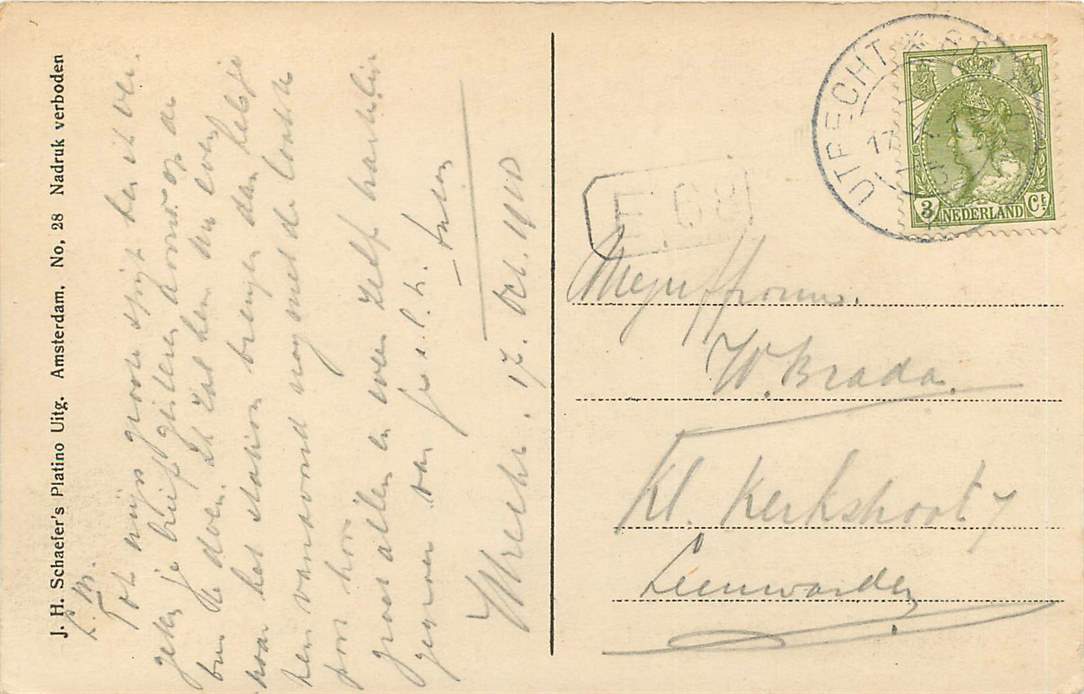 J. H. Schaefer's Platino Uitg. Amsterdam, No, 28 Nadruk verboden
L. M.
Tot mijn groote spijt ben ik ver-
je brief gisteren avond op de
bus te doen. Ik zal hem nu even
naar het station brengen dan heb je
hem vanavond nog met de laatste
post hoor
groet allen en wees zelf hartelijk
van je
Utrecht. 17 Oct. 1910
UTRECHT
17
3 NEDERLAND Ct
E 68
Mejuffrouw.
W. Brada.
Kl. Kerkstraat 7
Leeuwarden